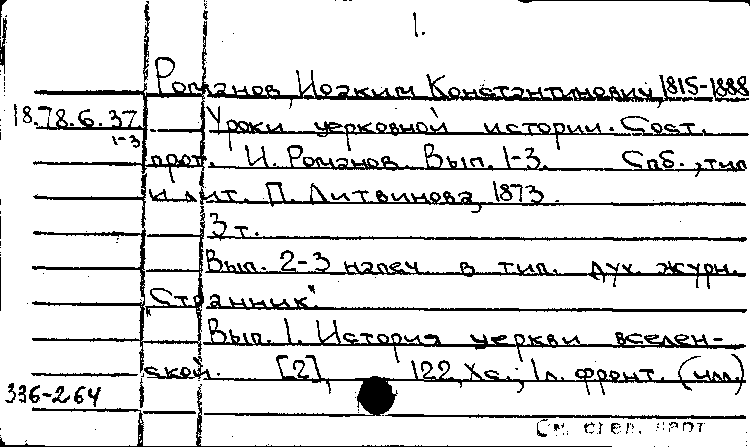 1.
Романов, Иоаким Константинович, 1815-1888
18.78.6.37
1-3
Уроки церковной истории. Сост.
прот. И. Романов. Вып. 1-3. Спб., тип
и лит. П. Литвинова, 1873.
3 т.
Вып. 2-3 напеч. в тип. дух. журн.
"Странник".
Вып. 1. История церкви вселен-
ской. [2], 122, Xс.; 1л. фронт. (илл.)
336-264
См. след. карт